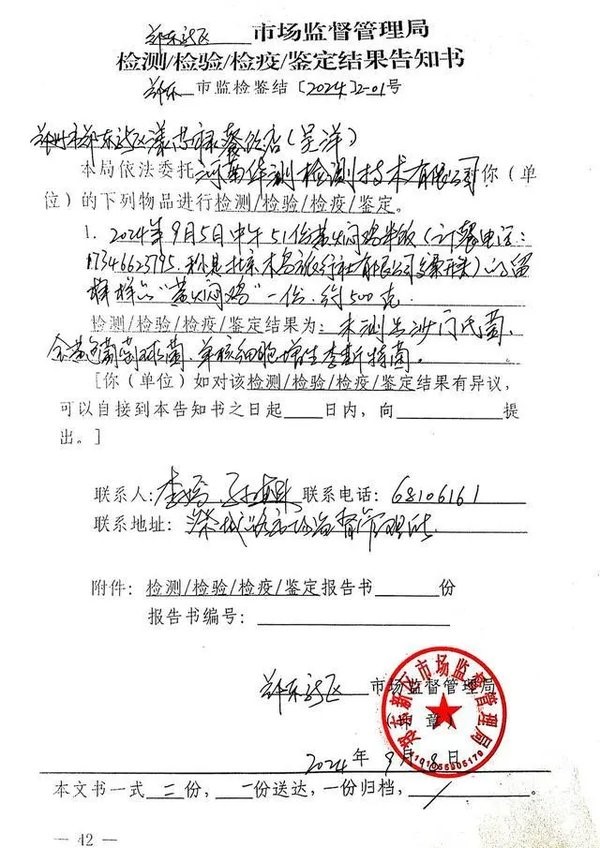 郑东新区 市场监督管理局
检测/检验/检疫/鉴定结果告知书
郑东 市监检鉴结〔2024〕2-01号
郑州市郑东新区 忠禄餐饮店(吴洋)
本局依法委托河南华测检测技术有限公司你(单
位)的下列物品进行检测/检验/检疫/鉴定。
1. 2024年9月5日中午51份黄焖鸡米饭(订餐电话:
17346623795.称是北京木鸟旅行社有限公司 )的留
样样品"黄焖鸡"一份.约500克
检测/检验/检疫/鉴定结果为: 未测出沙门氏菌、
金黄色葡萄球菌、单核细胞增生李斯特菌。
[你(单位)如对该检测/检验/检疫/鉴定结果有异议,
可以自接到本告知书之日起 日内,向 提
出。]
联系人: 联系电话: 68106161
联系地址: 市场监督管理所
附件:检测/检验/检疫/鉴定报告书 份
报告书编号:
郑东新区 市场监督管理局
(印章)
2024年9月8日
郑东新区市场监督管理局
本文书一式二份,一份送达,一份归档, /
— 42 —